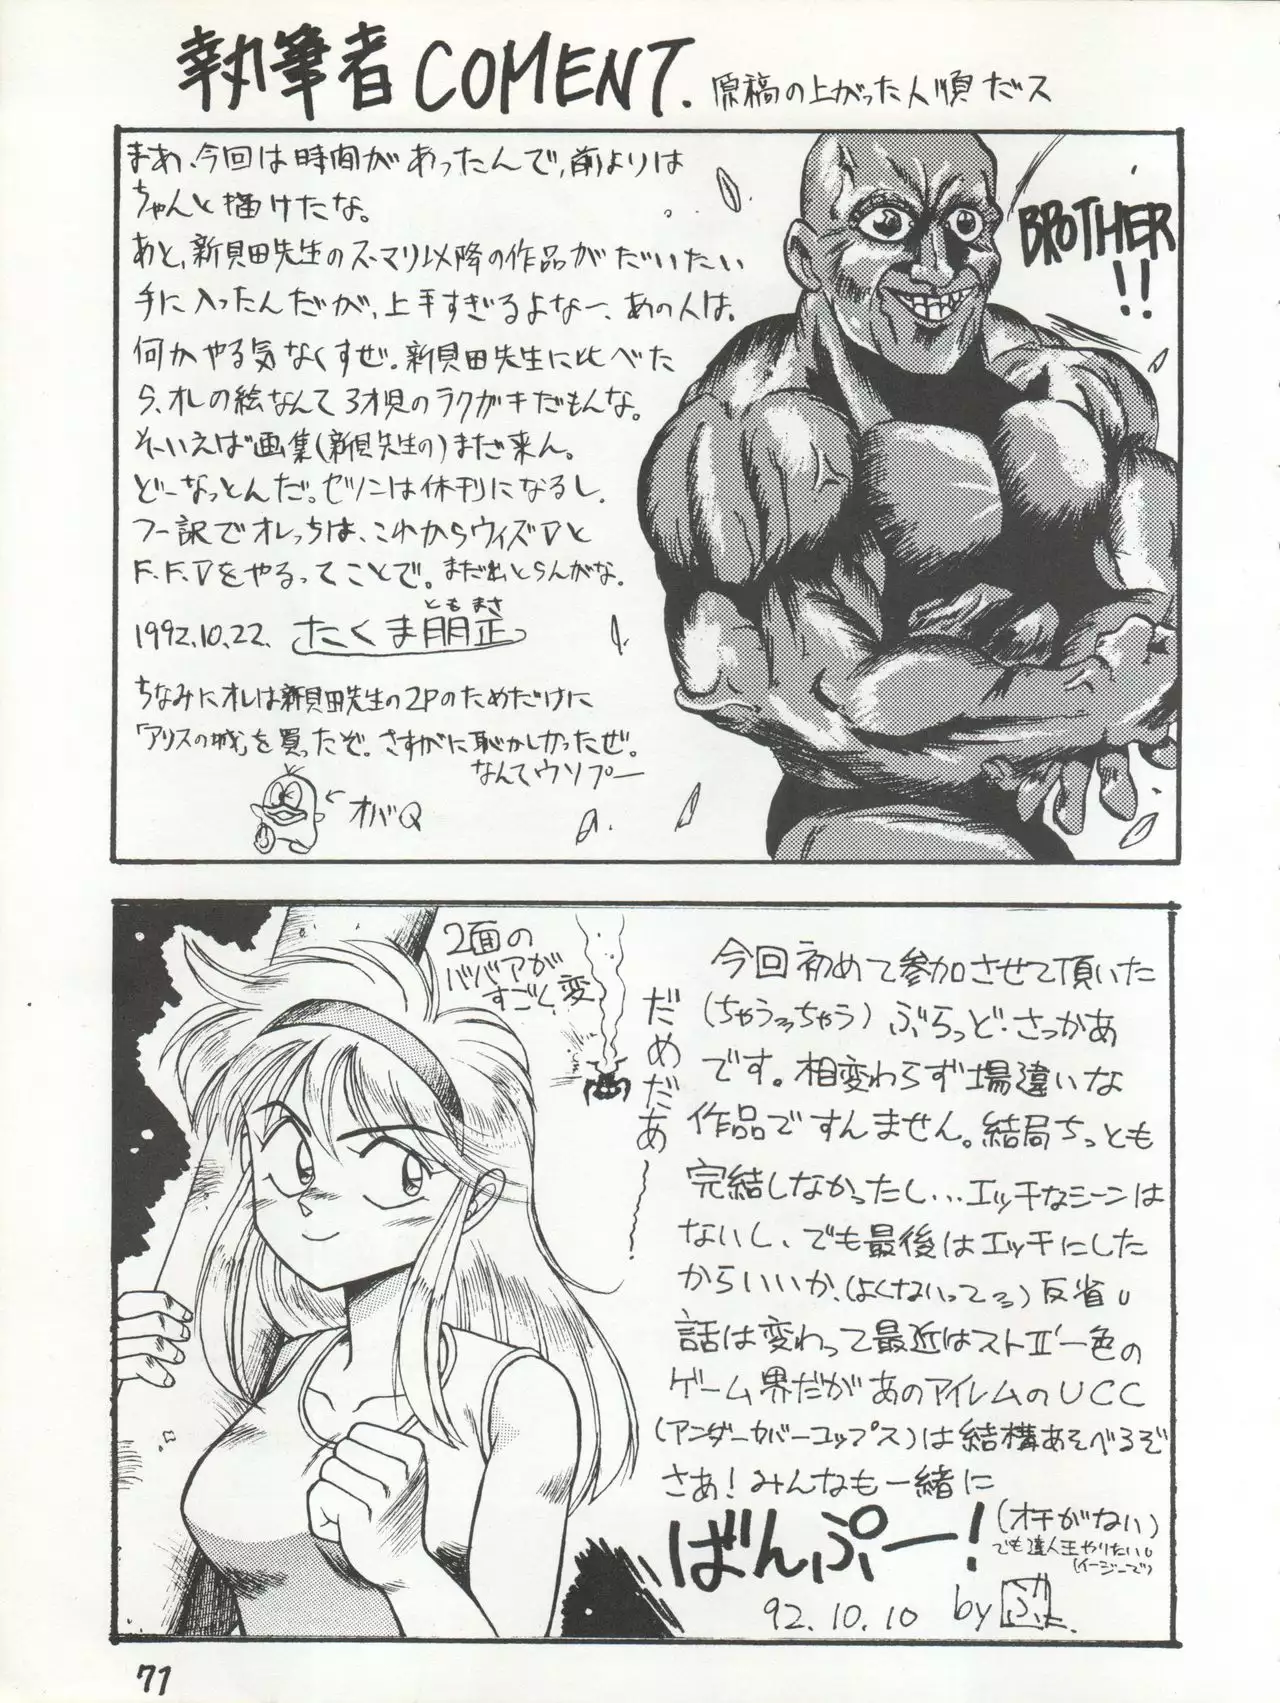 執筆者 COMENT. 原稿の上がった人順だス
まあ、今回は時間があったんで、前よりは
ちゃんと描けたな。
あと、新貝田先生のスーマリ以降の作品がだいたい
手に入ったんだが、上手すぎるよなー、あの人は。
何かやる気なくすぜ。新貝田先生に比べた
ら、オレの絵なんて3才児のラクガキだもんな。
そーいえば画集(新貝先生の)まだ来ん。
どーなっとんだ。ゼノンは休刊になるし。
フー訳でオレっちは、これからウィズⅤと
F.F.Ⅴをやるってことで。まだ出とらんがな。
ともまさ
1992.10.22. たくま朋正
ちなみにオレは新貝田先生の2Pのためだけに
「アリスの城」を買ったぞ。さすがに恥かしかったぜ。
なんてウソプー
←オバQ
BROTHER
!!
2面の
ババアが
すごく変
だめだあ〜
今回初めて参加させて頂いた
(ちゃうっちゃう)ぶらっど・さっかあ
です。相変わらず場違いな
作品ですんません。結局ちっとも
完結しなかったし...エッチなシーンは
ないし、でも最後はエッチにした
からいいか、(よくないってっ)反省。
話は変わって最近はストⅡ'一色の
ゲーム界だがあのアイレムのUCC
(アンダーカバーコップス)は結構あそべるぞ
さあ!みんなも一緒に
ばんぷー!
(オチがない)
でも達人王やりたい。
(イージーで)
92.10.10 by
71